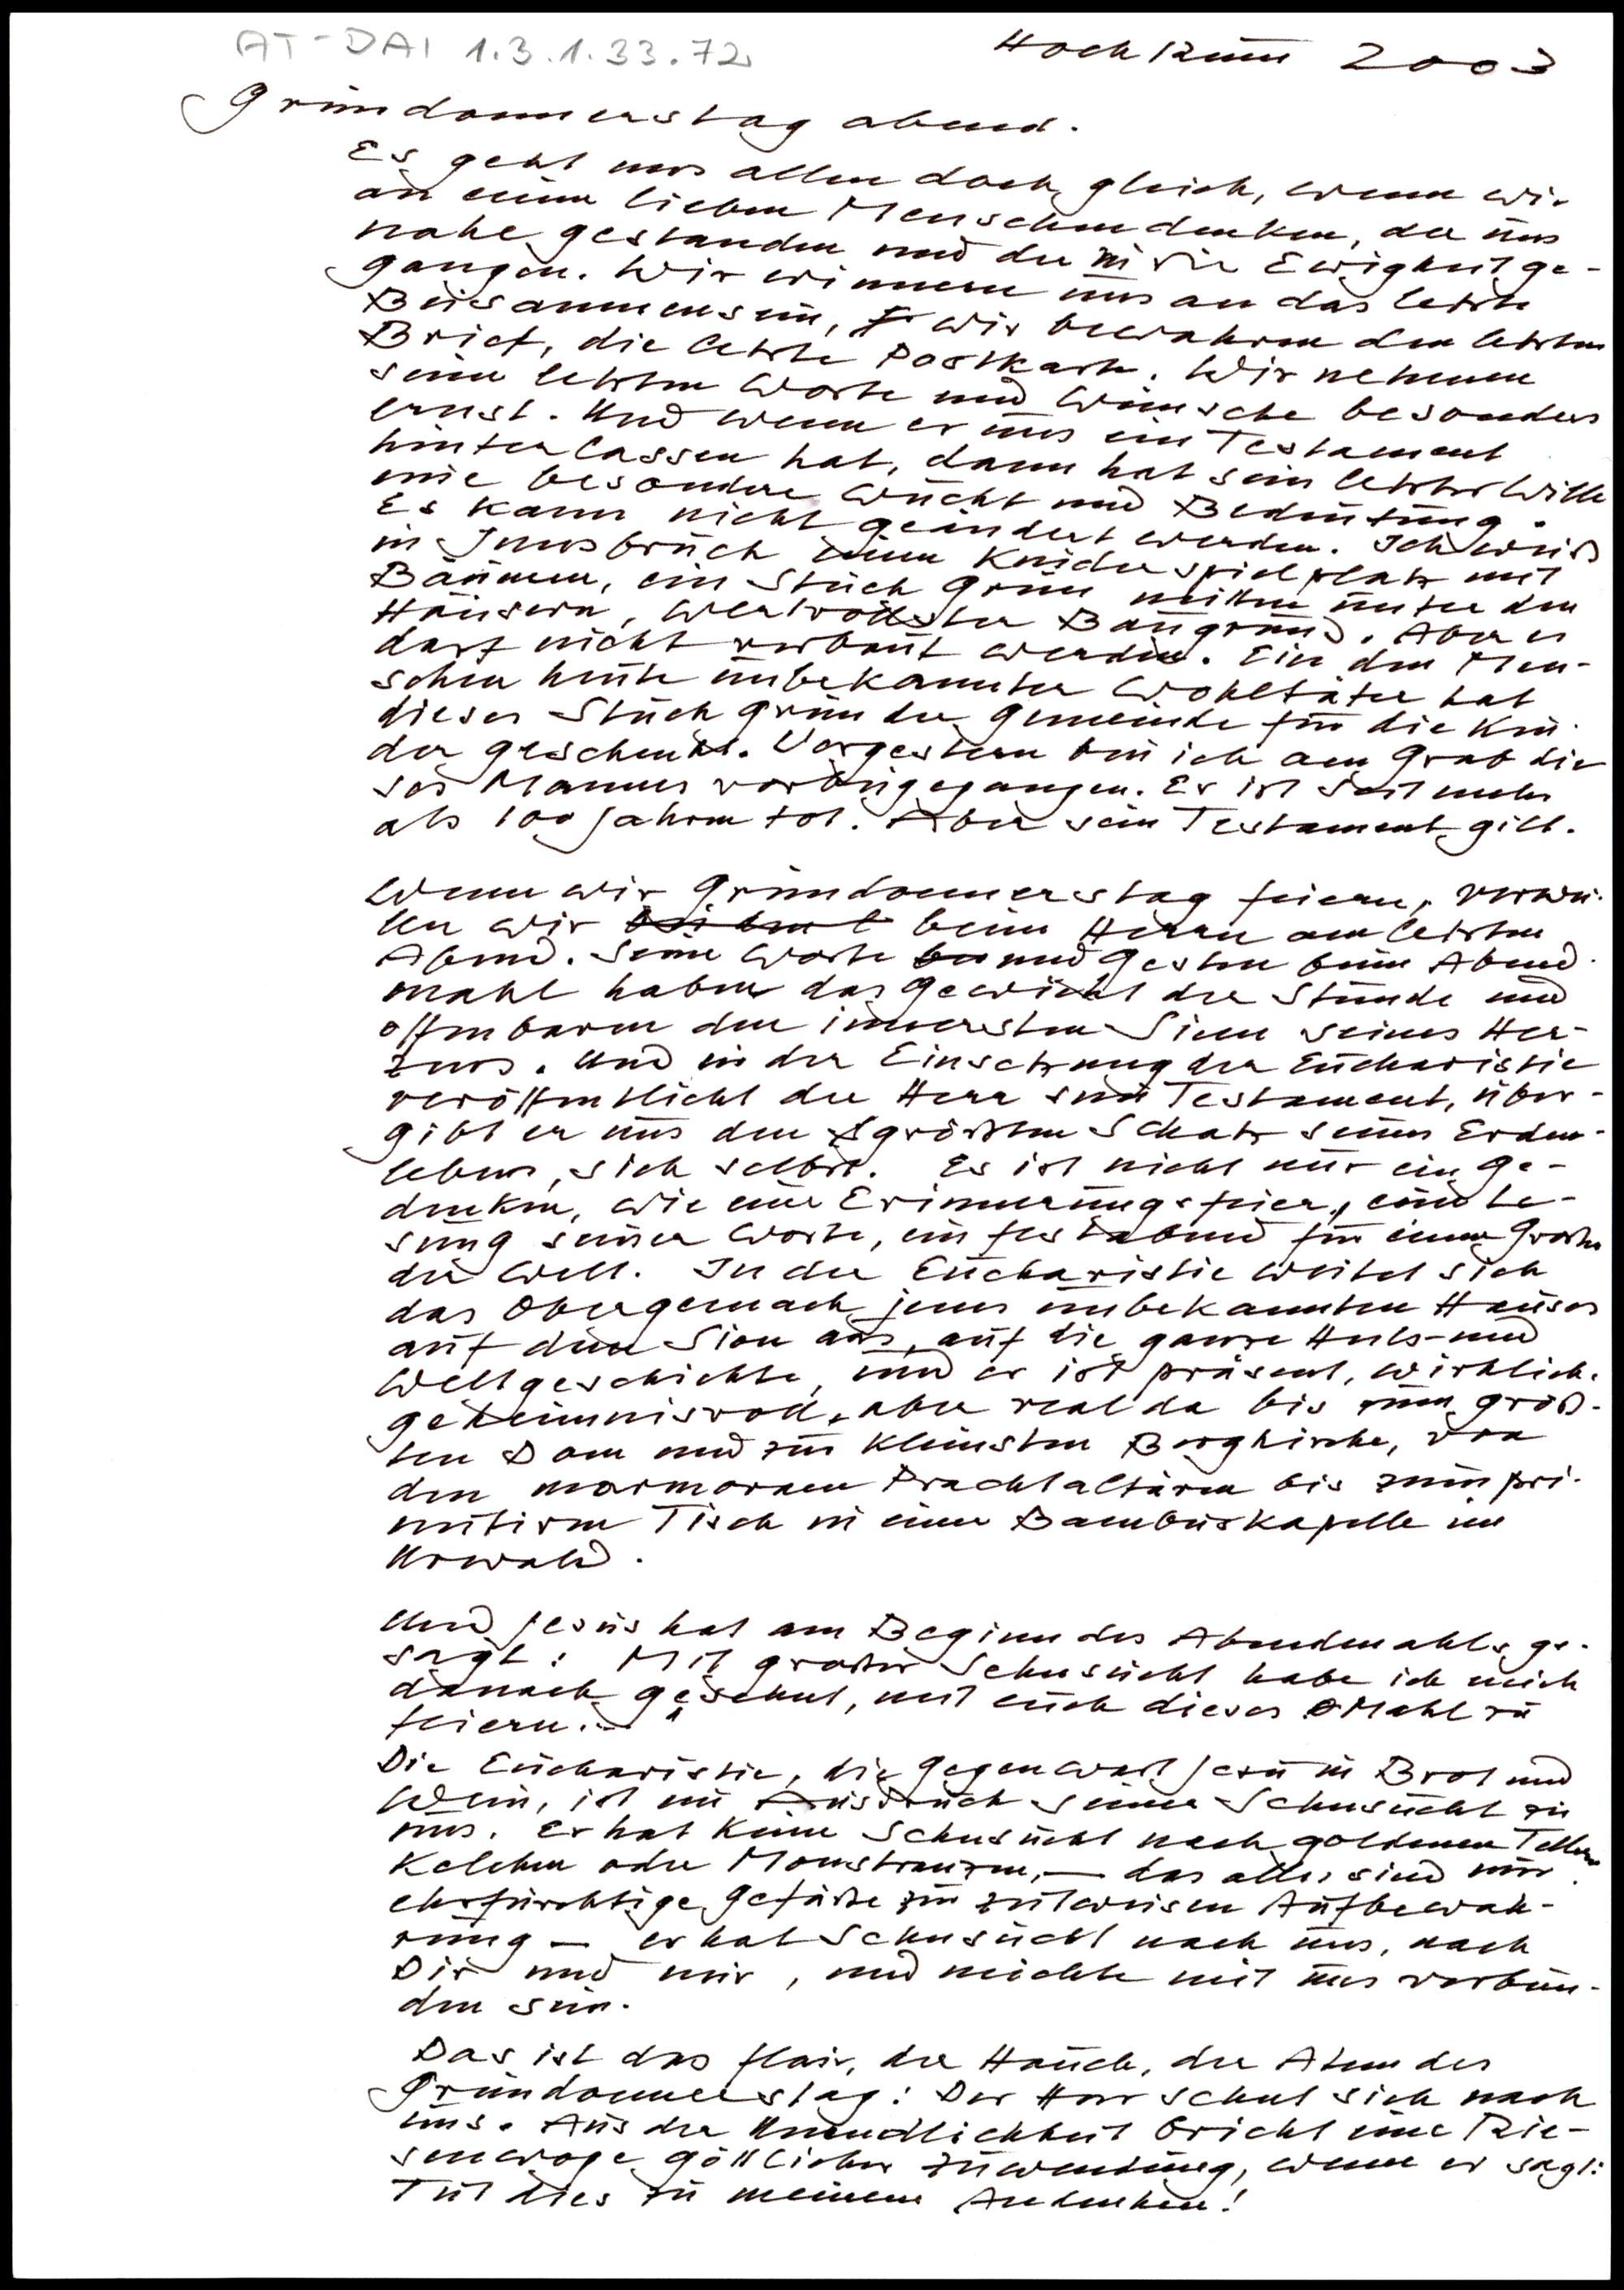 AT-DAI 1.3.1.33.72
Hochrum 2003
Gründonnerstag abend.
Es geht uns allen doch gleich, wenn wir
an einen lieben Menschen denken, der uns
nahe gestanden und der in die Ewigkeit ge-
gangen. Wir erinnern uns an das letzte
Beisammensein, wir bewahren den letzten
Brief, die letzte Postkarte. Wir nehmen
seine letzten Worte und Wünsche besonders
ernst. Und wenn er uns ein Testament
hinterlassen hat, dann hat sein letzter Wille
eine besondere Wucht und Bedeutung.
Es kann nicht geändert werden. Ich weiß
in Innsbruck einen Kinderspielplatz mit
Bäumen, ein Stück Grün mitten unter den
Häusern, wertvollster Baugrund. Aber er
darf nicht verbaut werden. Ein den Men-
schen heute unbekannter Wohltäter hat
dieses Stück Grün der Gemeinde für die Kin-
der geschenkt. Vorgestern bin ich am Grab die
ses Mannes vorbeigegangen. Er ist seit mehr
als 100 Jahren tot. Aber sein Testament gilt.
Wenn wir Gründonnerstag feiern, verwei-
len wir beim Herrn am letzten
Abend. Seine Worte und Gesten beim Abend-
mahl haben das Gewicht der Stunde und
offenbaren den innersten Sinn seines Her-
zens. Und in der Einsetzung der Eucharistie
veröffentlicht der Herr sein Testament, über-
gibt er uns den größten Schatz seines Erden-
lebens, sich selbst. Es ist nicht nur ein Ge-
denken, wie eine Erinnerungsfeier, eine Le-
sung seiner Worte, ein Festabend für einen Großen
der Welt. In der Eucharistie weitet sich
das Obergemach jenes unbekannten Hauses
auf dem Sion aus, auf die ganze Heils- und
Weltgeschichte, und er ist präsent, wirklich,
geheimnisvoll, aber real da bis zum größ-
ten Dom und zur kleinsten Bergkirche, von
den marmornen Prachtaltären bis zum pri-
mitiven Tisch in einer Bambuskapelle im
Urwald.
Und Jesus hat am Beginn des Abendmahls ge-
sagt: Mit großer Sehnsucht habe ich mich
danach gesehnt, mit euch dieses Mahl zu
feiern."
Die Eucharistie, die Gegenwart Jesu in Brot und
Wein, ist ein Ausdruck seiner Sehnsucht zu
uns. Er hat keine Sehnsucht nach goldenen Tellern
Kelchen oder Monstranzen, – das alles sind nur
ehrfürchtige Gefäße zur zeitweisen Aufbewah-
rung – er hat Sehnsucht nach uns, nach
Dir und mir, und möchte mit uns verbun-
den sein.
Das ist das Flair, der Hauch, der Atem des
Gründonnerstag: Der Herr sehnt sich nach
uns. Aus der Unendlichkeit bricht eine Rie-
senwoge göttlicher Zuwendung, wenn er sagt:
Tut dies zu meinem Andenken!